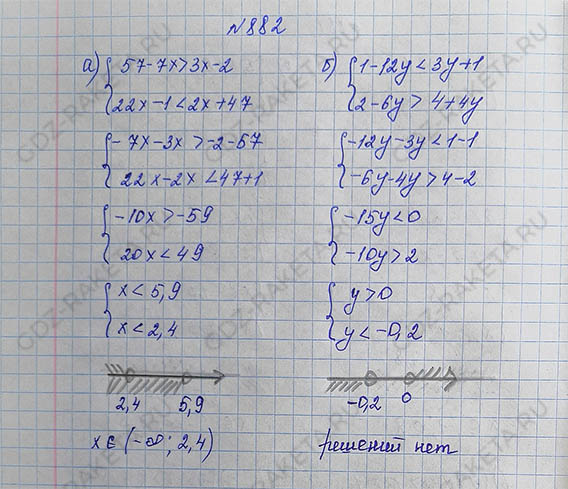 №882
а) { 57-7x>3x-2
22x-1<2x+47
{ -7x-3x>-2-57
22x-2x<47+1
{ -10x>-59
20x<49
{ x<5,9
x<2,4
2,4 5,9
x∈(-∞; 2,4)
б) { 1-12y<3y+1
2-6y>4+4y
{ -12y-3y<1-1
-6y-4y>4-2
{ -15y<0
-10y>2
{ y>0
y<-0,2
-0,2 0
решений нет
GDZ-RAKETA.RU